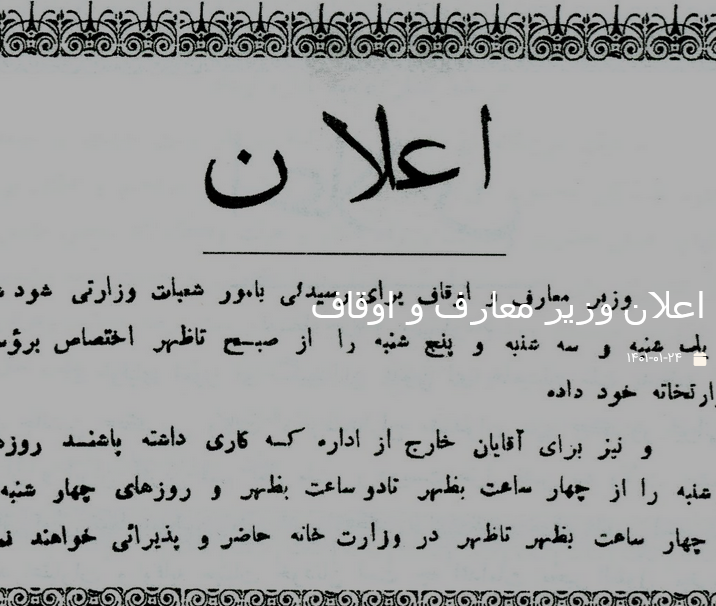 اعلان
وزیر معارف و اوقاف برای رسیدگی بامور شعبات وزارتی خود
اعلان وزیر معارف و اوقاف
شنبه و سه شنبه و پنج شنبه را از صبح تاظهر اختصاص
۱۴۰۱-۰۱-۲۴
خود داده
و نیز برای آقایان خارج از اداره که کاری داشته باشند
شنبه را از چهار ساعت بظهر تادو ساعت بظهر و روزهای چهار شنبه
چهار ساعت بظهر تاظهر در وزارت خانه حاضر و پذیرائی خواهند